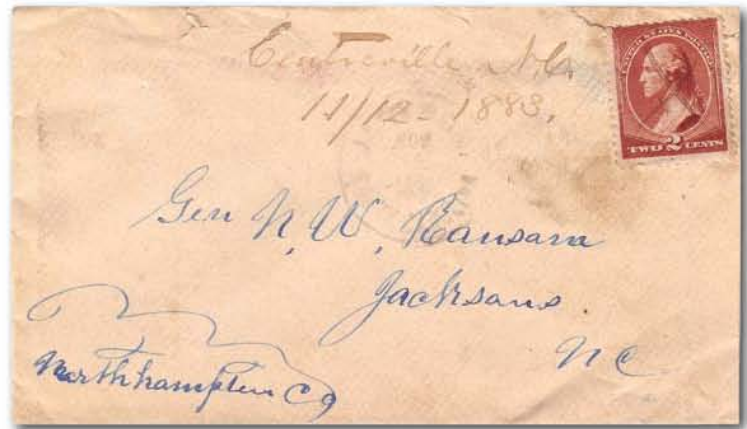 Centreville N.C.
11/12-1883.
UNITED STATES POSTAGE
TWO 2 CENTS
Gen N, W, Ransara
Jacksans
NC
Northhampten Co